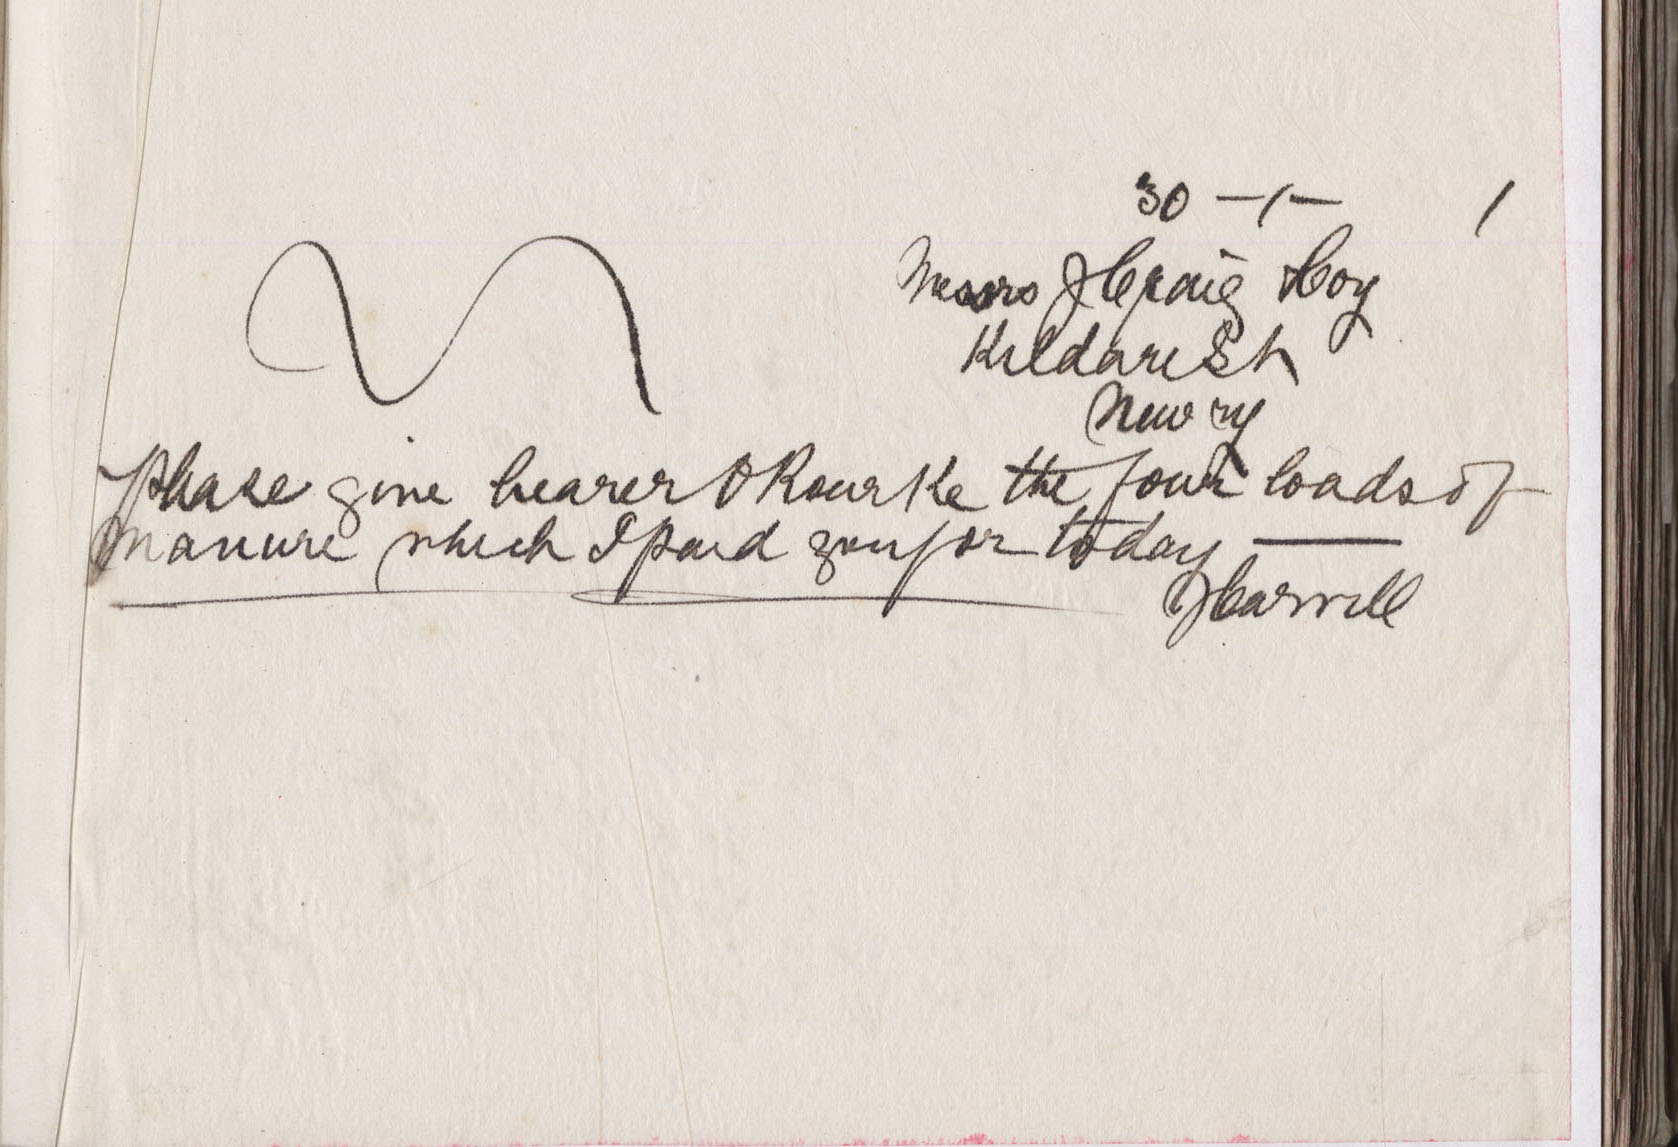 30 -/- /
Messrs J Craig & Coy
Kildare St
Newry
Please give bearer O Rourke the four loads of
manure which I paid you for today —
J Carvill